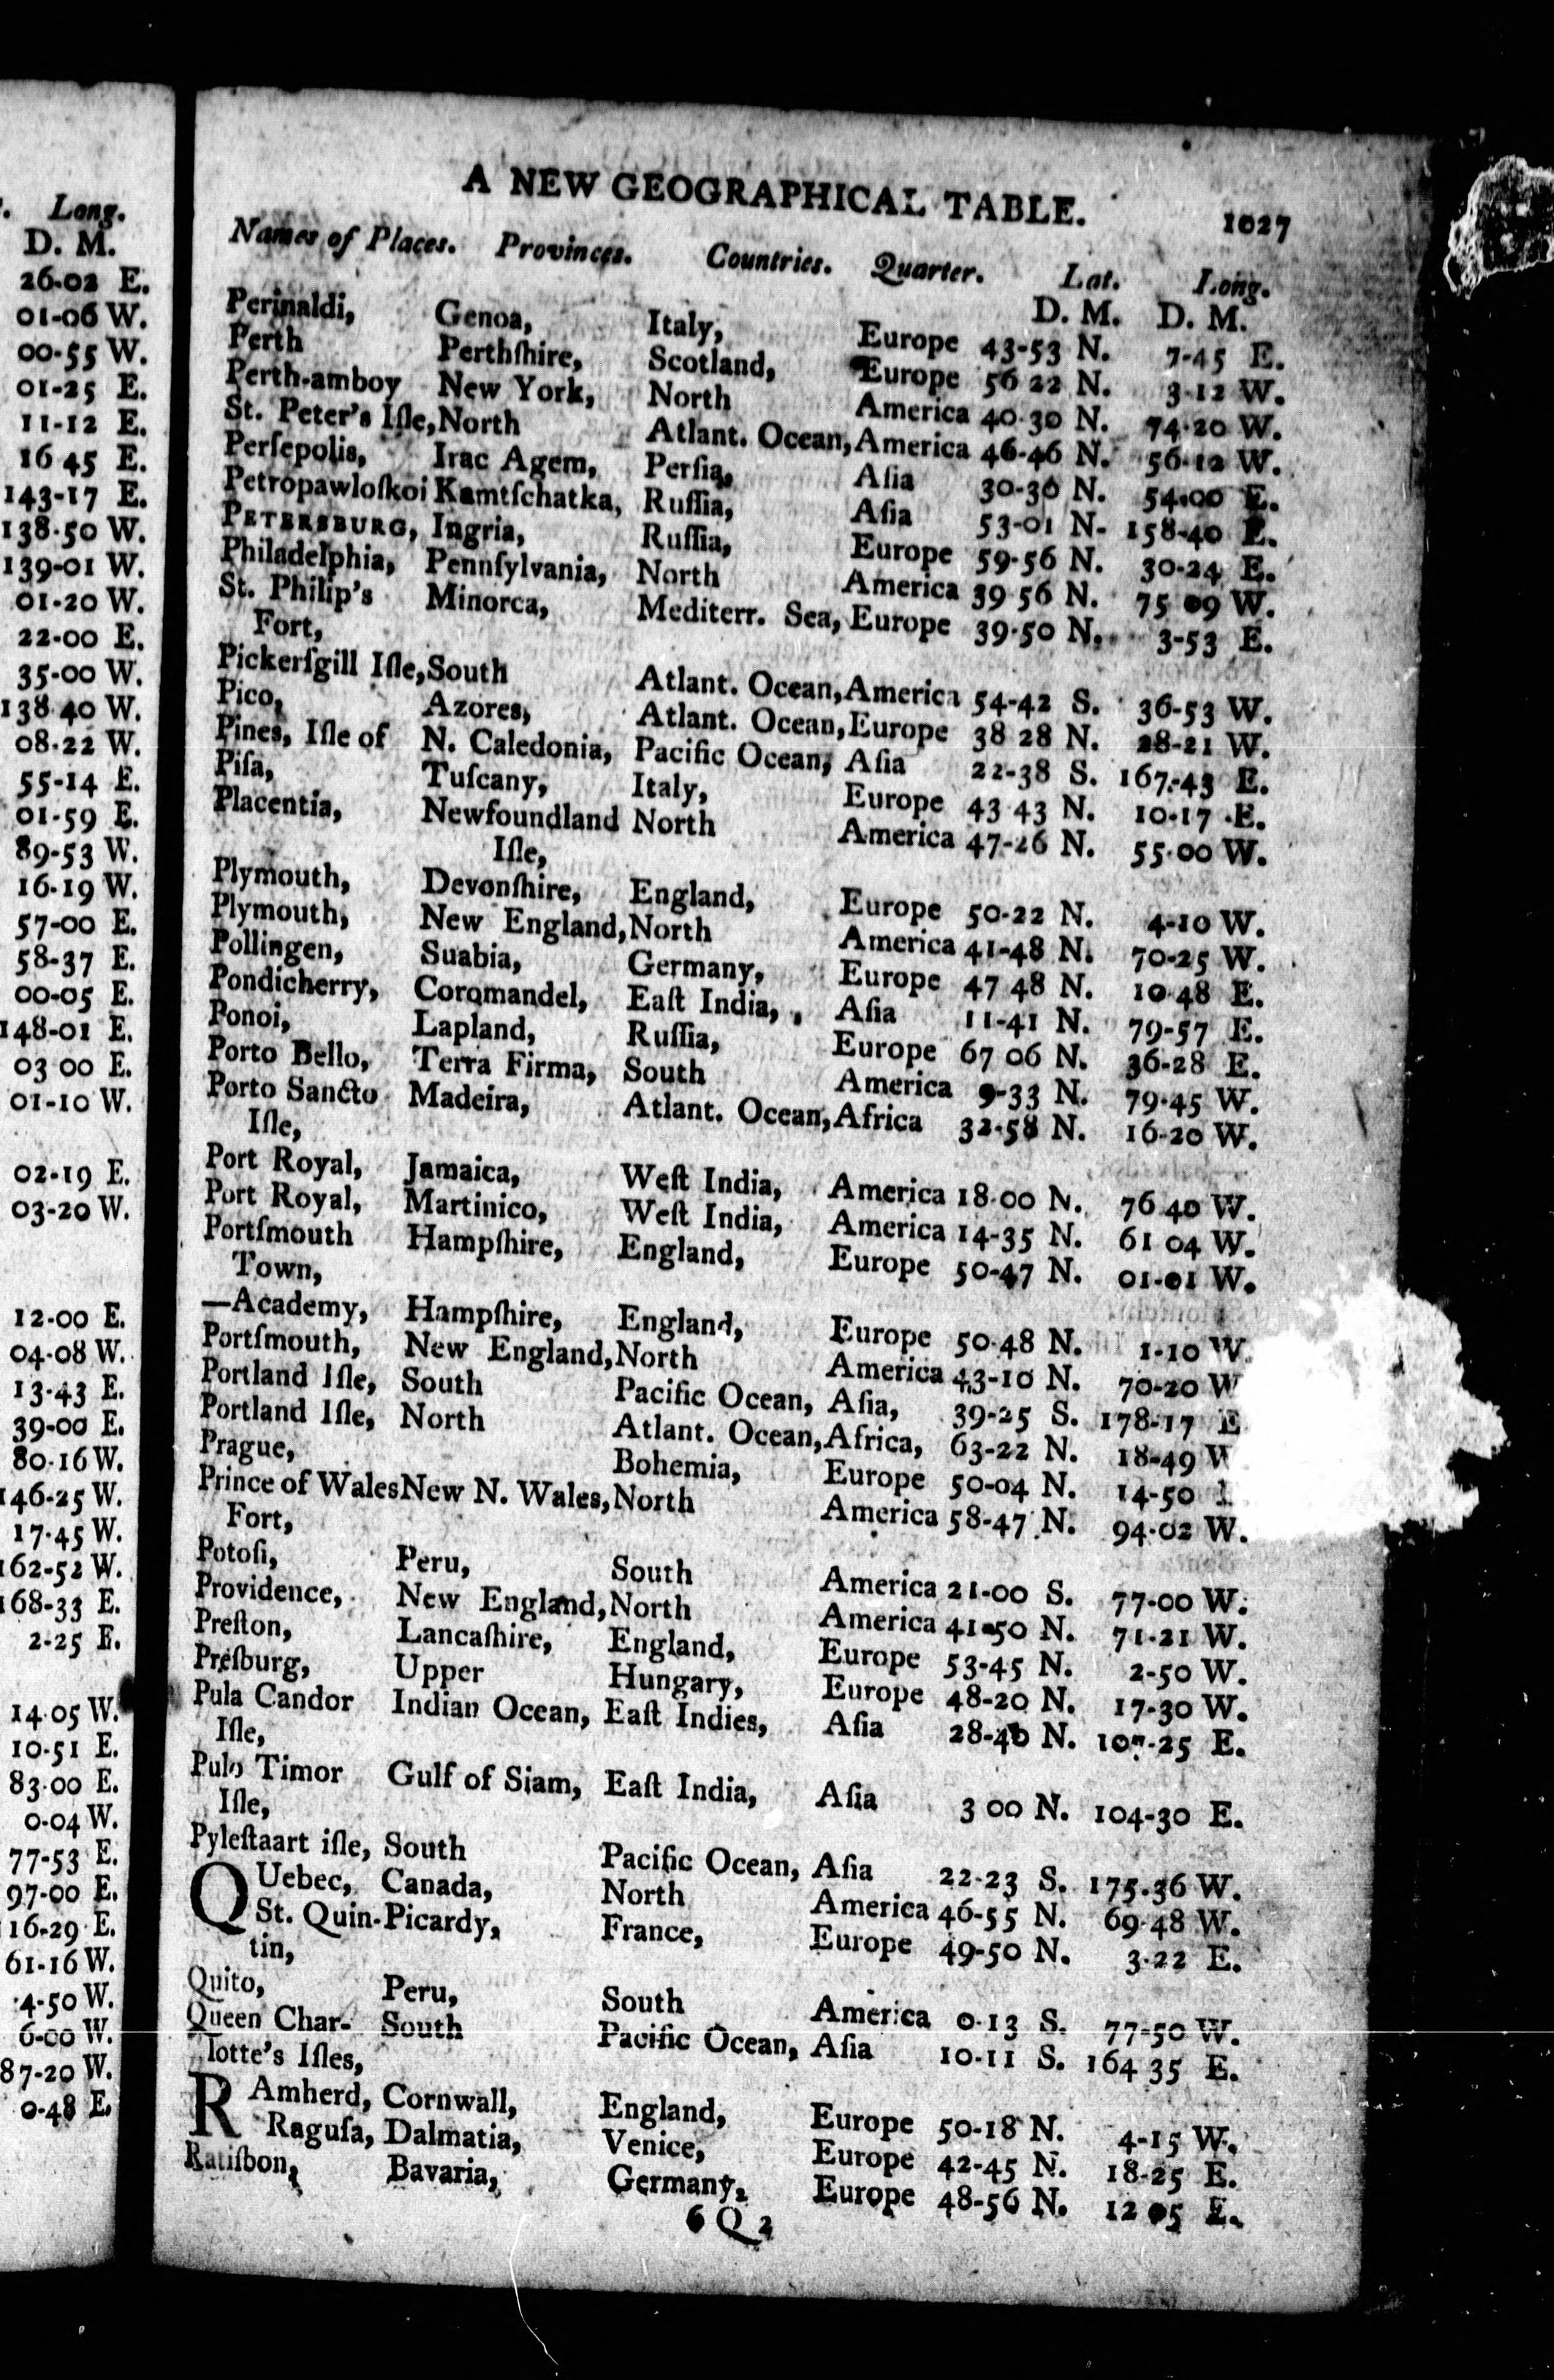 . Long.
D. M.
26-02 E.
01-06 W.
00-55 W.
01-25 E.
11-12 E.
16 45 E.
143-17 E.
138-50 W.
139-01 W.
01-20 W.
22-00 E.
35-00 W.
138 40 W.
08-22 W.
55-14 E.
01-59 E.
89-53 W.
16-19 W.
57-00 E.
58-37 E.
00-05 E.
148-01 E.
03 00 E.
01-10 W.
02-19 E.
03-20 W.
12-00 E.
04-08 W.
13-43 E.
39-00 E.
80-16 W.
146-25 W.
17-45 W.
162-52 W.
168-33 E.
2-25 E.
14 05 W.
10-51 E.
83-00 E.
0-04 W.
77-53 E.
97-00 E.
16-29 E.
61-16 W.
4-50 W.
6-00 W.
87-20 W.
0-48 E.
A NEW GEOGRAPHICAL TABLE. 1027
Names of Places. Provinces. Countries. Quarter. Lat. Long.
D. M. D. M.
Perinaldi, Genoa, Italy, Europe 43-53 N. 7-45 E.
Perth Perthſhire, Scotland, Europe 56 22 N. 3-12 W.
Perth-amboy New York, North America 40-30 N. 74-20 W.
St. Peter's Iſle, North Atlant. Ocean, America 46-46 N. 56-12 W.
Perſepolis, Irac Agem, Perſia, Aſia 30-30 N. 54-00 E.
Petropawloſkoi Kamtſchatka, Ruſſia, Aſia 53-01 N- 158-40 E.
PETERSBURG, Ingria, Ruſſia, Europe 59-56 N. 30-24 E.
Philadelphia, Pennſylvania, North America 39 56 N. 75 09 W.
St. Philip's Minorca, Mediterr. Sea, Europe 39-50 N. 3-53 E.
Fort,
Pickerſgill Iſle, South Atlant. Ocean, America 54-42 S. 36-53 W.
Pico, Azores, Atlant. Ocean, Europe 38 28 N. 28-21 W.
Pines, Iſle of N. Caledonia, Pacific Ocean, Aſia 22-38 S. 167-43 E.
Piſa, Tuſcany, Italy, Europe 43 43 N. 10-17 E.
Placentia, Newfoundland North America 47-26 N. 55-00 W.
Iſle,
Plymouth, Devonſhire, England, Europe 50-22 N. 4-10 W.
Plymouth, New England, North America 41-48 N. 70-25 W.
Pollingen, Suabia, Germany, Europe 47 48 N. 10 48 E.
Pondicherry, Coromandel, Eaſt India, Aſia 11-41 N. 79-57 E.
Ponoi, Lapland, Ruſſia, Europe 67 06 N. 36-28 E.
Porto Bello, Terra Firma, South America 9-33 N. 79-45 W.
Porto Sancto Madeira, Atlant. Ocean, Africa 32-58 N. 16-20 W.
Iſle,
Port Royal, Jamaica, Weſt India, America 18-00 N. 76 40 W.
Port Royal, Martinico, Weſt India, America 14-35 N. 61 04 W.
Portſmouth Hampſhire, England, Europe 50-47 N. 01-01 W.
Town,
—Academy, Hampſhire, England, Europe 50-48 N. 1-10 W.
Portſmouth, New England, North America 43-10 N. 70-20 W
Portland Iſle, South Pacific Ocean, Aſia, 39-25 S. 178-17 E
Portland Iſle, North Atlant. Ocean, Africa, 63-22 N. 18-49 W
Prague, Bohemia, Europe 50-04 N. 14-50
Prince of Wales New N. Wales, North America 58-47 N. 94-02 W.
Fort,
Potoſi, Peru, South America 21-00 S. 77-00 W.
Providence, New England, North America 41-50 N. 71-21 W.
Preſton, Lancaſhire, England, Europe 53-45 N. 2-50 W.
Preſburg, Upper Hungary, Europe 48-20 N. 17-30 W.
Pula Candor Indian Ocean, Eaſt Indies, Aſia 28-40 N. 107-25 E.
Iſle,
Pulo Timor Gulf of Siam, Eaſt India, Aſia 3 00 N. 104-30 E.
Iſle,
Pyleſtaart iſle, South Pacific Ocean, Aſia 22-23 S. 175-36 W.
QUebec, Canada, North America 46-55 N. 69-48 W.
St. Quin- Picardy, France, Europe 49-50 N. 3-22 E.
tin,
Quito, Peru, South America 0-13 S. 77-50 W.
Queen Char- South Pacific Ocean, Aſia 10-11 S. 164 35 E.
lotte's Iſles,
RAmherd, Cornwall, England, Europe 50-18 N. 4-15 W.
Raguſa, Dalmatia, Venice, Europe 42-45 N. 18-25 E.
Ratiſbon, Bavaria, Germany, Europe 48-56 N. 12 05 E.
6 Q 2